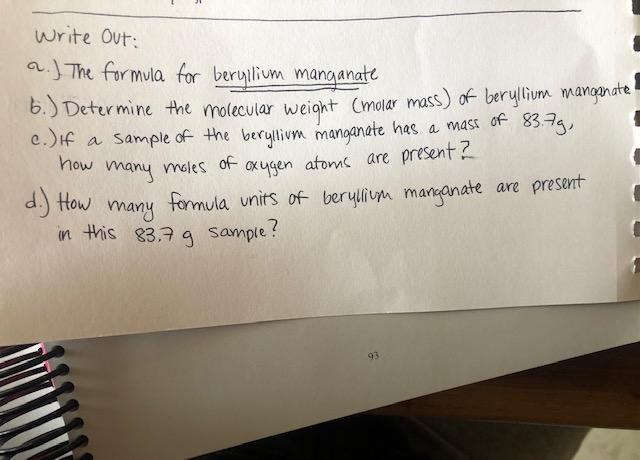 Write Out:
a.) The formula for beryllium manganate
b.) Determine the molecular weight (molar mass) of beryllium manganate
c.) If a sample of the beryllium manganate has a mass of 83.7g,
how many moles of oxygen atoms are present?
d.) How many formula units of beryllium manganate are present
in this 83.7 g sample?
93